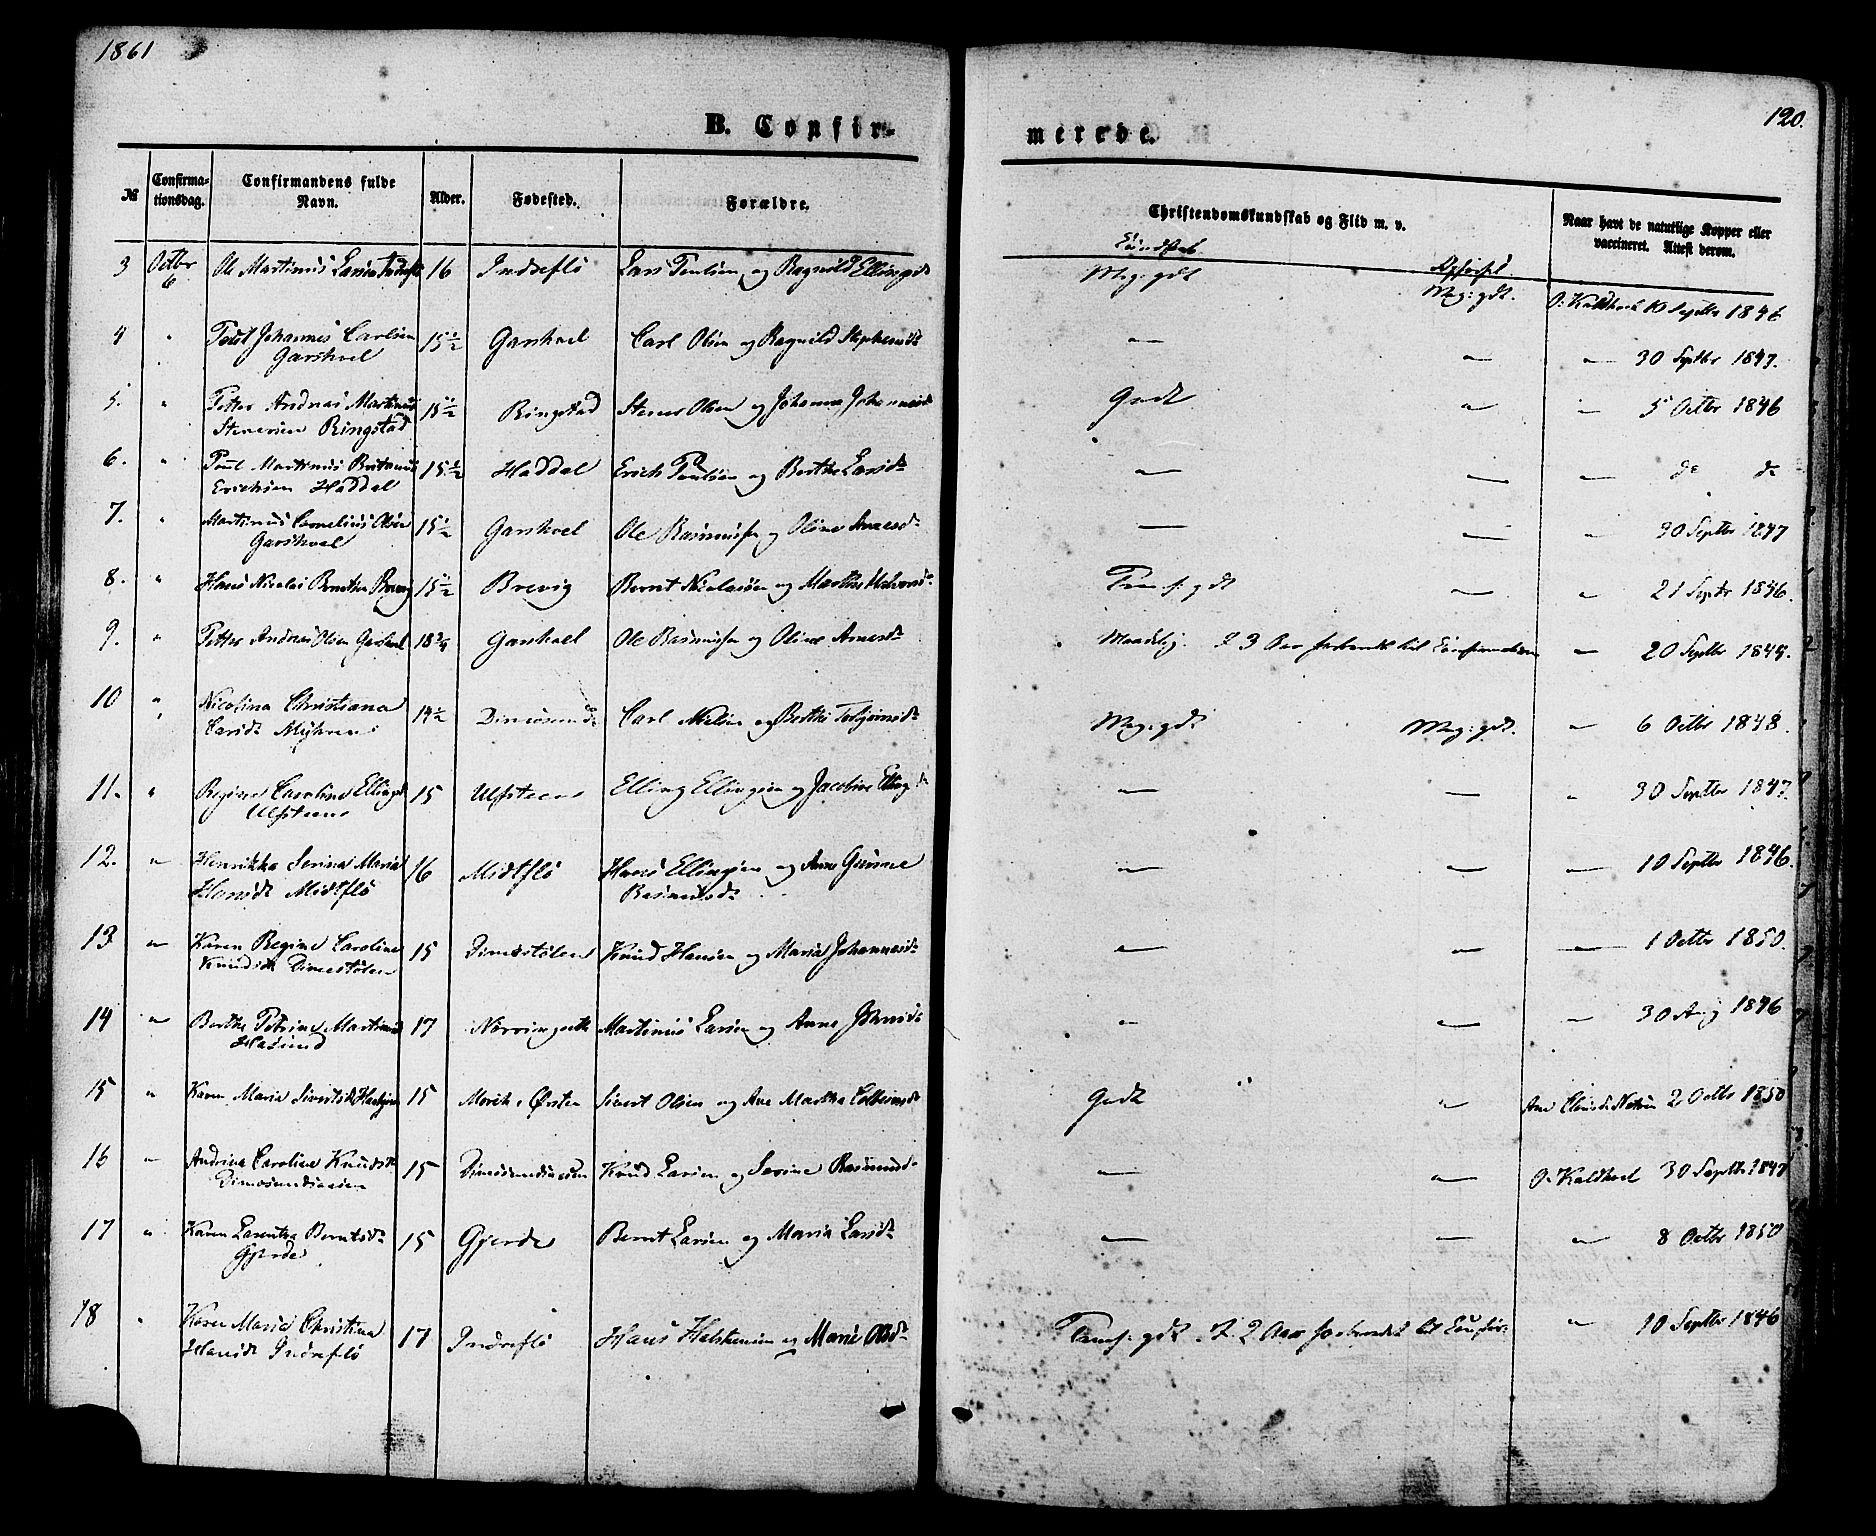 1861
120.
B. Confir-
merede.
№
Confirma-
tionsdag.
Confirmandens fulde
Navn.
Alder.
Fødested.
Forældre.
Christendomskundskab og Flid m. v.
Naar havt de naturlige Kopper eller
vaccineret. Attest derom.
Kundskab
Opførsel
3 Octbr 6 Ole Martinus Larsen 16 Indreflö Lars Poulsen og Ragnild Ellingsd Meg: gdt Meg: gdt. O: Kaldhoel 10 Septbr 1846
4 " Johannes Carlsen
Garshoel 15½ Garshoel Carl Olsen og Ragnild Stephensd — — — 30 Septbr 1847.
5. " Petter Andreas Martinus
Stenersen Ringstad 15½ Ringstad Stener Olsen og Johanne Johannesd Godt " — 5 Octbr 1846
6. " Poul Martinus
Ericksen Haddal 15½ Haddal Erich Poulsen og Berthe Larsd — — — do do
7. " Martinus Cornelius Olsen
Garshoel 15½ Garshoel Ole Rasmussen og Oline Arnesd — — — 30 Septbr 1847
8. " Hans Nicolai Berntsen Brevig 15½ Brevig Bernt Nicolaisen og Marthe Temf: gdt — " 21 Septr 1846.
9. " Petter Andreas Olsen Garshoel 18¾ Garshoel Ole Rasmussen og Oline Arnesd Maadelig. 3 Aar forberedt til Confirmation — 20 Septbr 1845.
10 " Nicolina Christiana
Carlsd Myhrene 14½ Carl Nielsen og Berthe Torbjörnsd Meg: gdt Meg: gdt. — 6 Octbr 1848.
11. " Regine Caroline Ellingsd
Ulfsteen 15 Ulfsteen Elling Ellingsen og Jacobine Ellingsd — — " 30 Septbr 1847.
12. " Henrikka Serina Maria
Hansd Midtflö 16 Midtflö Hans Ellingsen og Anne Gurine
Rasmusd — — — 10 Septbr 1846.
13 " Karen Regine Caroline
Knudsd Dimestölen 15 Dimestölen Knud Hansen og Maria Johannesd — — — 1 Octbr 1850.
14 " Berthe Petrine Martinusd
Hasund 17 Martinus Larsen og Anne Johnsd " — — 30 Aug 1846
15 " Karen Maria Sivertsd 15 Ørsten Sivert Olsen og Ane Martha Godt " Ane 2 Octbr 1850
16 " Andrine Caroline Knudsd 15 Knud Larsen og Serine Rasmusd — — O: Kaldhoel 30 Septbr 1847
17 " Karen Larentse Berntsd
Gjerde 15 Gjerde Bernt Larsen og Maria Larsd — — — 8 Octbr 1850
18 " Karen Maria Christina
Hansd Indreflö 17 Indreflö Hans Halstensen og Marie Olsd Temf: gdt. 2 Aar forberedet til Confir: " 10 Septbr 1846